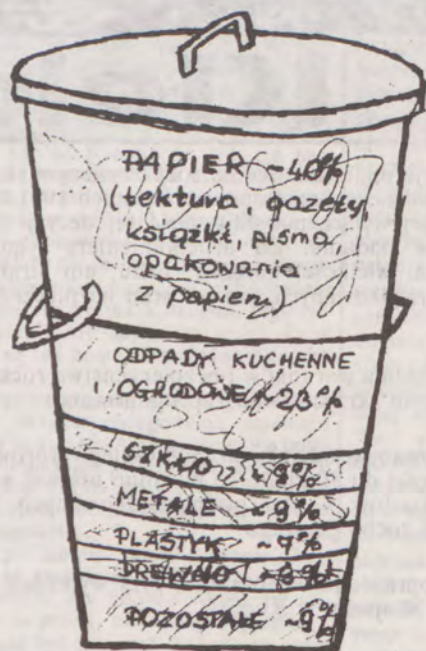 PAPIER ~40%
(tektura, gazety,
książki, pisma,
opakowania
z papieru)
ODPADY KUCHENNE
i OGRODOWE ~ 23%
SZKŁO
METALE ~9%
PLASTYK ~7%
DREWNO
POZOSTAŁE ~9%